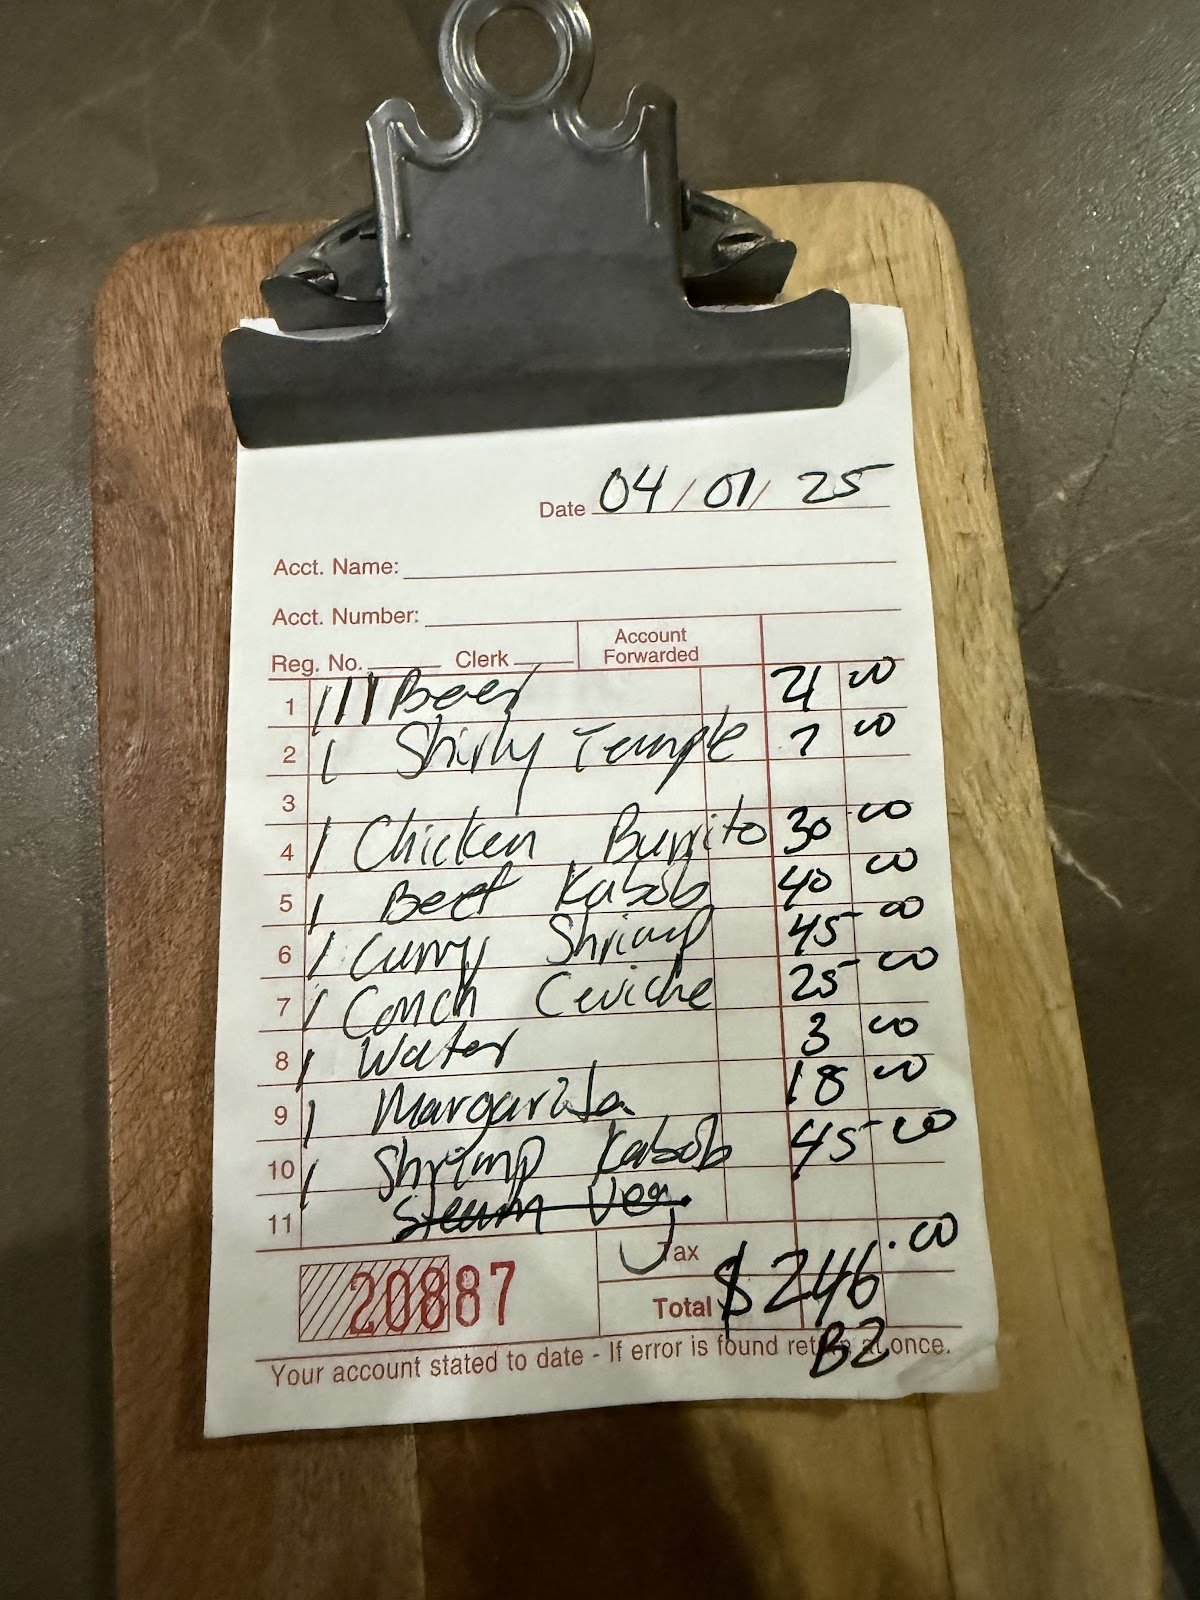 Date 04/01/25
Acct. Name:
Acct. Number:
Reg. No. Clerk Account Forwarded
1 1111 Beer 21 00
2 1 Shirly Temple 7 00
3
4 1 Chicken Burrito 30 00
5 1 Beef Kabob 40 00
6 1 Curry Shrimp 45 00
7 1 Conch Ceviche 25 00
8 1 Water 3 00
9 1 Margarita 18 00
10 1 Shrimp Kabob 45 00
11 Steam Veg.
Tax
20887 Total $246.00
B2
Your account stated to date - If error is found return at once.